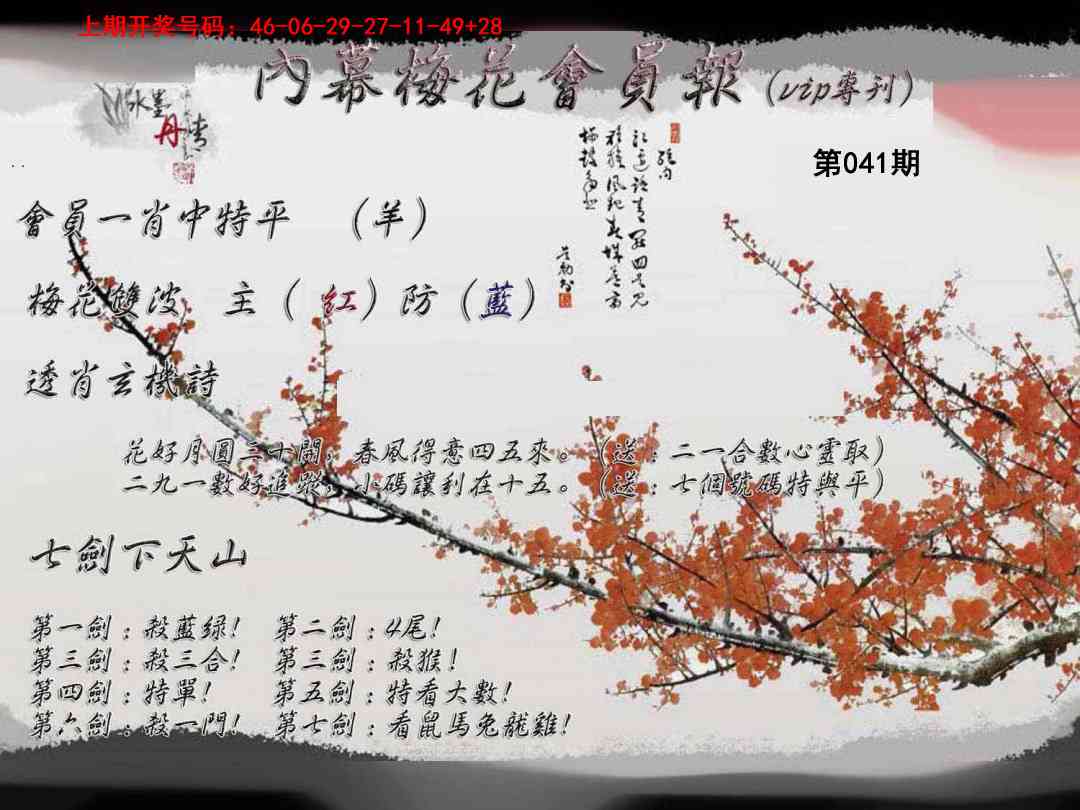 上期开奖号码：46-06-29-27-11-49+28
內幕梅花會員報(vip專刊)
水墨丹青
第041期
會員一肖中特平 （羊）
梅花雙波 主（紅）防（藍）
透肖玄機詩
花好月圓三十開，春風得意四五來。（送：二一合數心靈取）
二九一數好追蹤，小碼讓利在十五。（送：七個號碼特與平）
七劍下天山
第一劍：殺藍绿! 第二劍：4尾!
第三劍：殺三合! 第三劍：殺猴!
第四劍：特單! 第五劍：特看大數!
第六劍：殺一門! 第七劍：看鼠馬兔龍雞!